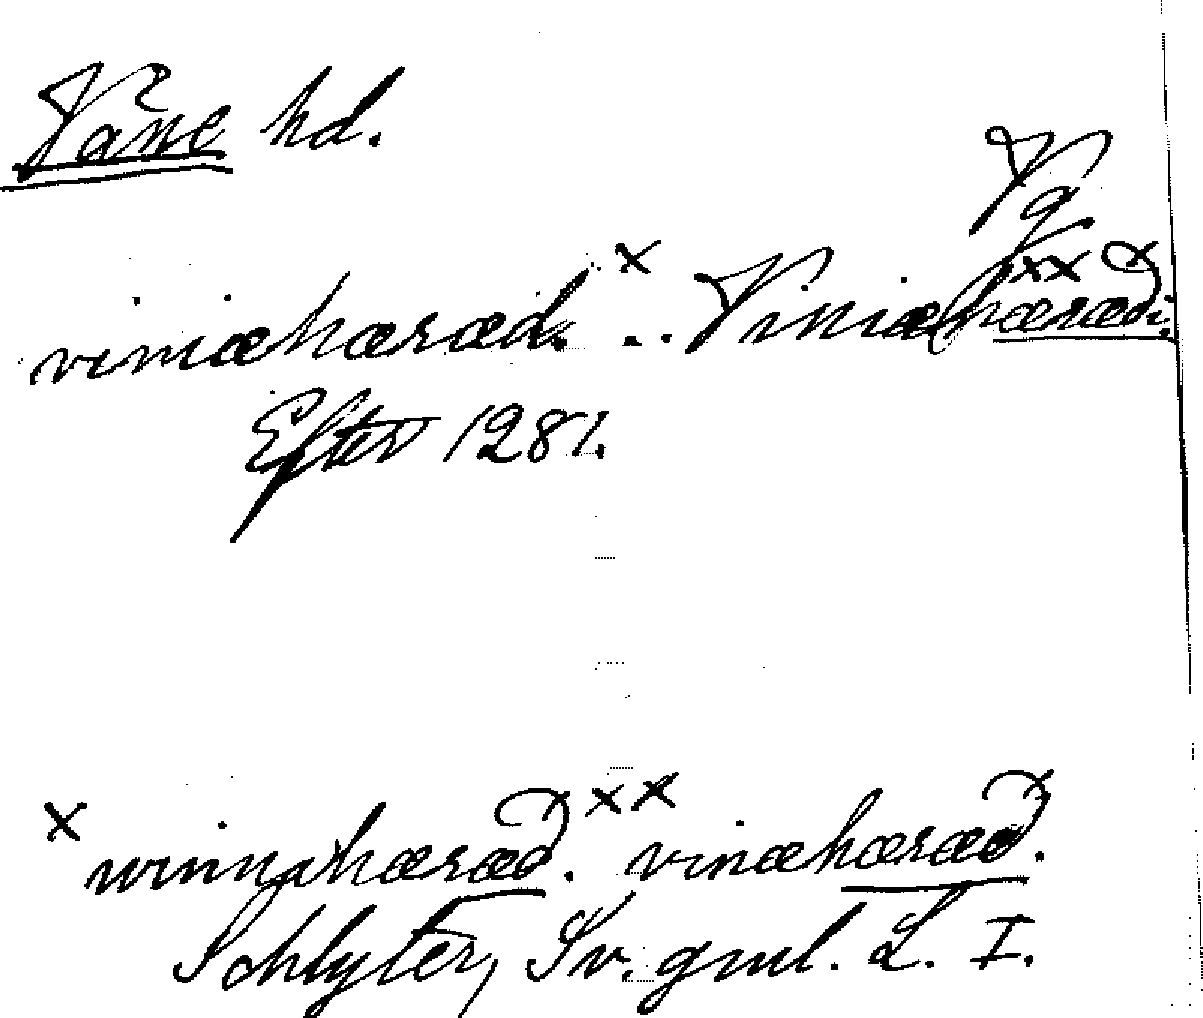 Våne hd.
Vg
viniæhæræd. x .. Viniæhæræði. xx
Efter 1281.
x winnahæræð. xx vinæhæræð.
Schlyter, Sv. gml. L. I.